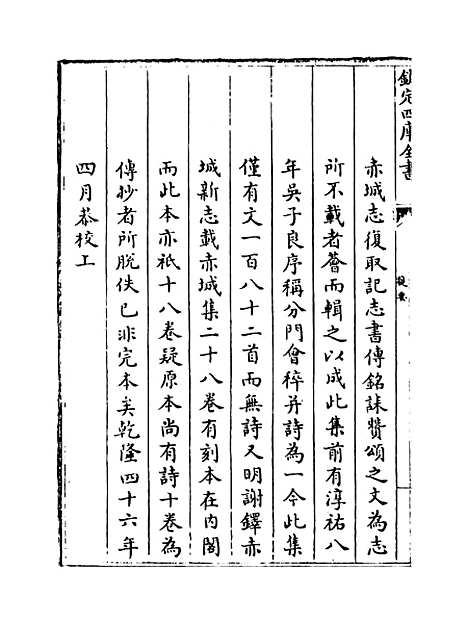 欽定四庫全書
提要
赤城志復取記志書傳銘誄賛頌之文為志
所不載者薈而輯之以成此集前有淳祐八
年吳子良序稱分門會稡并詩為一今此集
僅有文一百八十二首而無詩又明謝鐸赤
城新志載赤城集二十八卷有刻本在内閣
而此本亦祇十八卷疑原本尚有詩十卷為
傳抄者所脱佚已非完本矣乾隆四十六年
四月恭校上